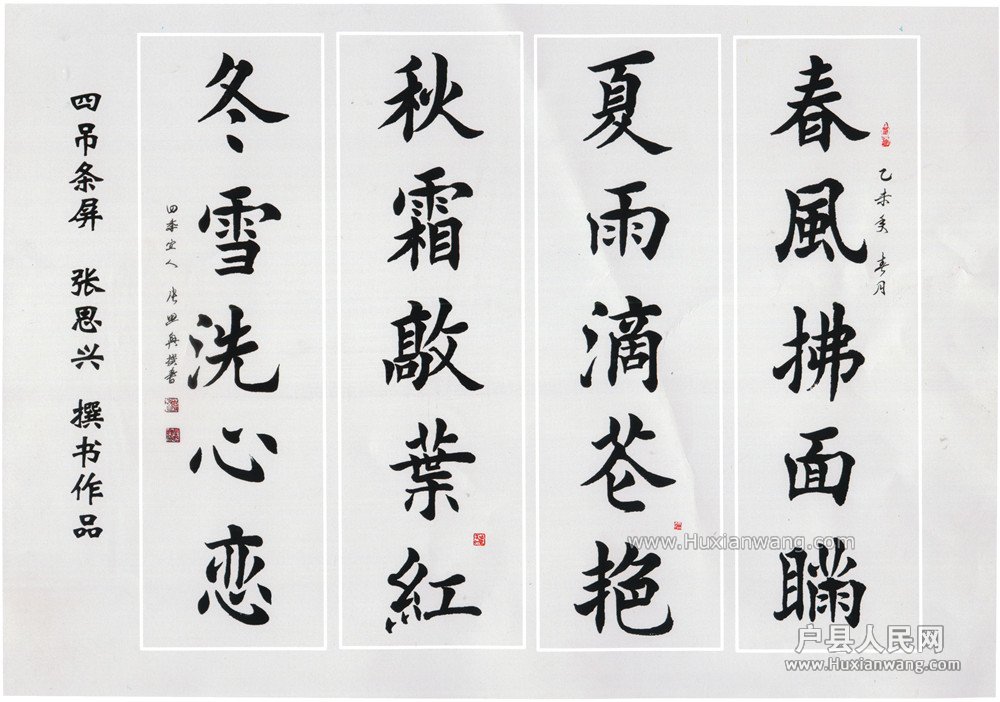 春風拂面
乙未秊 春月
夏雨滴苍艳
秋霜敲葉紅
冬雪洗心恋
四季宜人 張思興撰書
四吊条屏 张思兴 撰书作品
www.Huxianwang.com
户县人民网
www.Huxianwang.com